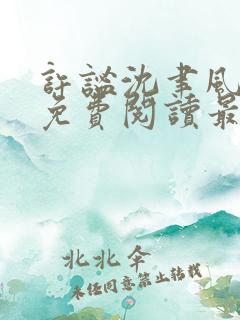 許謐沈聿風
免費閱讀最
北北伞
未经同意禁止转载